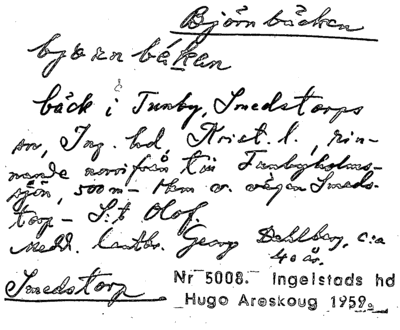 Björnbäcken
bjœrnbä́kan
bäck i Tunby, Smedstorps
sn, Ing. hd, Krist. l., rin-
nande norrifrån till Tunbyholms-
sjön, 500 m – 1 km v. vägen Smeds-
torp – S:t Olof.
Medd. lantbr. Georg Dahlberg, c:a
40 år.
Smedstorp
Nr 5008. Ingelstads hd
Hugo Areskoug 1959.